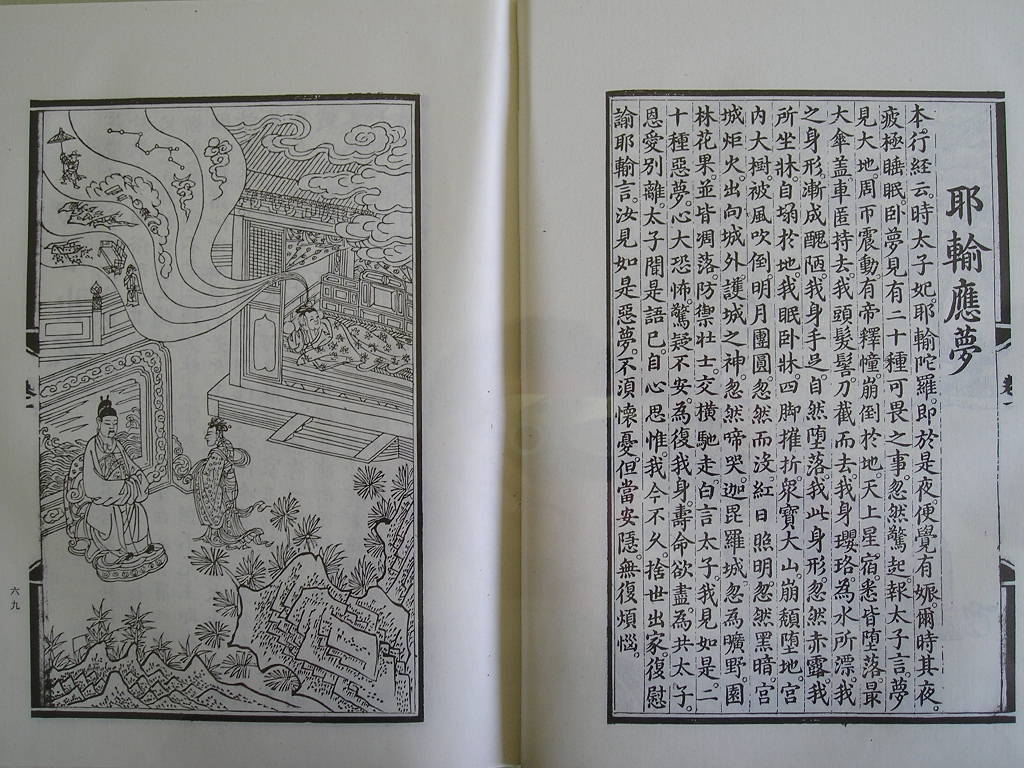 耶輸應夢
本行経云。時太子妃。耶輸陀羅。即於是夜。便覺有娠。爾時其夜。
疲極睡眠。卧夢見有二十種可畏之事。忽然驚起。報太子言。夢
見大地。周帀震動。有帝釋幢。崩倒於地。天上星宿。悉皆堕落。最
大傘盖。車匿持去。我頭髮髻。刀截而去。我身瓔珞。為水所漂。我
之身形。漸成醜陋。我身手足。自然堕落。我此身形。忽然赤露。我
所坐牀。自塌於地。我眠卧牀。四脚摧折。衆寶大山。崩頹堕地。宮
内大樹。被風吹倒。明月團圓。忽然而沒。紅日照明。忽然黑暗。宮
城炬火。出向城外。護城之神。忽然啼哭。迦毘羅城。忽為曠野。園
林花果。並皆凋落。防禦壮士。交横馳走。白言太子。我見如是二
十種惡夢。心大恐怖。驚疑不安。為復我身。壽命欲盡。為共太子。
恩愛別離。太子聞是語已。自心思惟。我今不久。捨世出家。復慰
諭耶輸言。汝見如是惡夢。不湏懐憂。但當安隱。無復煩惱。
卷一
六九